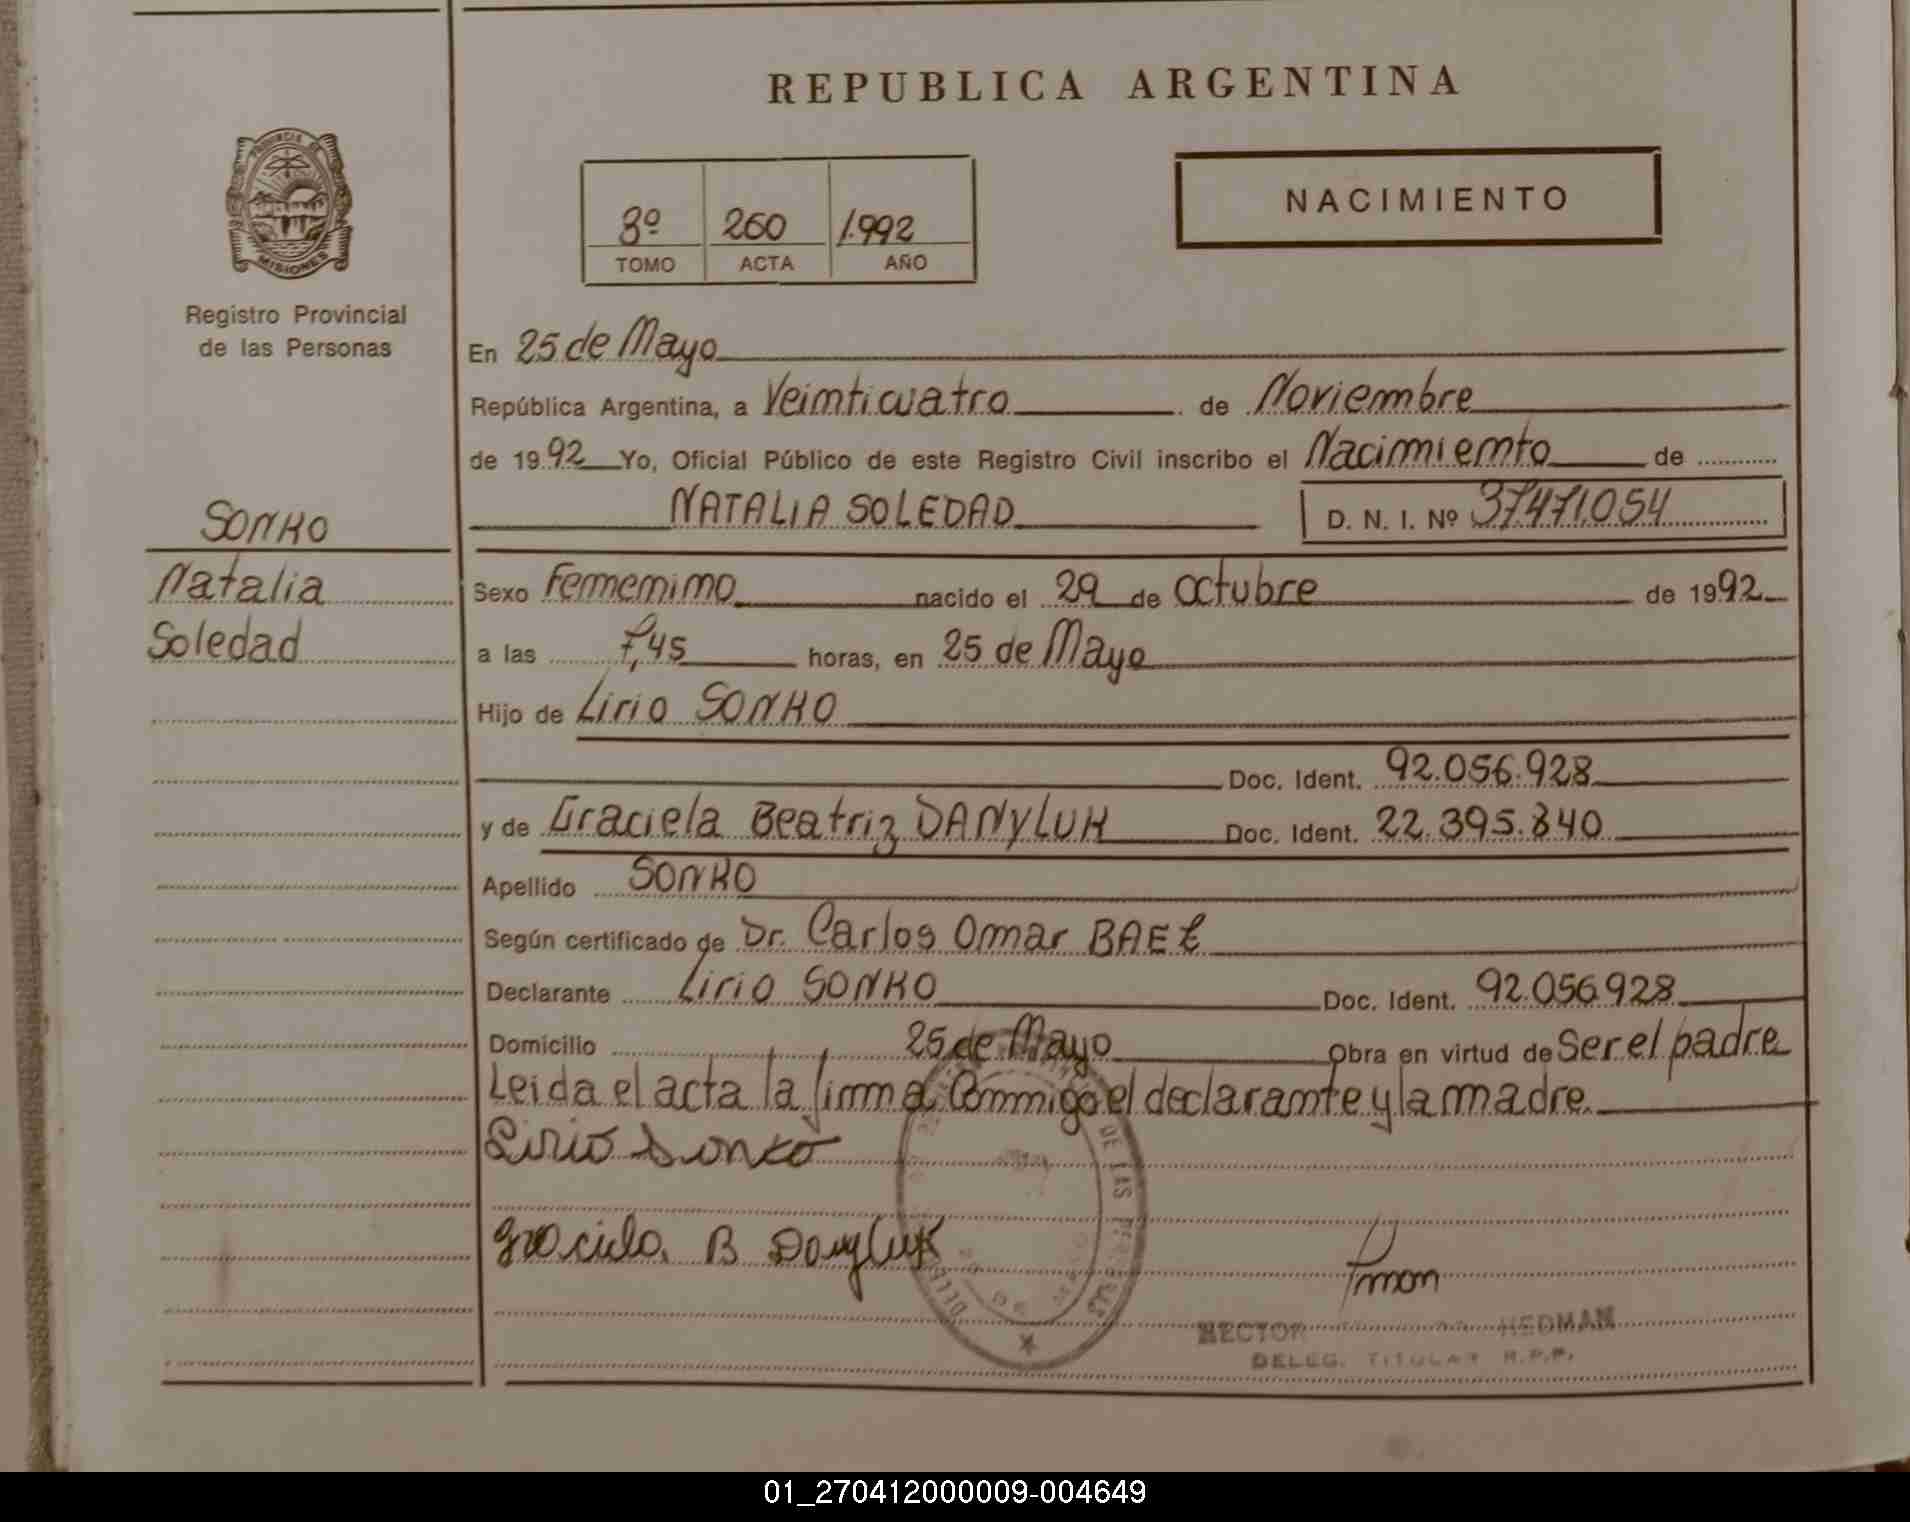 REPUBLICA ARGENTINA
PROVINCIA DE
MISIONES
Registro Provincial
de las Personas
NACIMIENTO
3º 260 1.992
TOMO ACTA AÑO
En 25 de Mayo
República Argentina, a Veinticuatro de Noviembre
de 1992 Yo, Oficial Público de este Registro Civil inscribo el Nacimiento de
NATALIA SOLEDAD D. N. I. Nº 37471.054
SONKO
Natalia
Soledad
Sexo Femenino nacido el 29 de octubre de 1992
a las 7,45 horas, en 25 de Mayo
Hijo de Lirio SONKO
Doc. Ident. 92.056.928
y de Graciela Beatriz DANYLUK Doc. Ident. 22.395.840
Apellido SONKO
Según certificado de Dr. Carlos Omar BAEZ
Declarante Lirio SONKO Doc. Ident. 92.056.928
Domicilio 25 de Mayo Obra en virtud de Ser el padre
Leida el acta la firma Conmigo el declarante y la madre
Lirio Sonko
Graciela. B Danyluk
DE LAS
HECTOR HEDMAN
DELEG. TITULAR R.P.P.
01_270412000009-004649